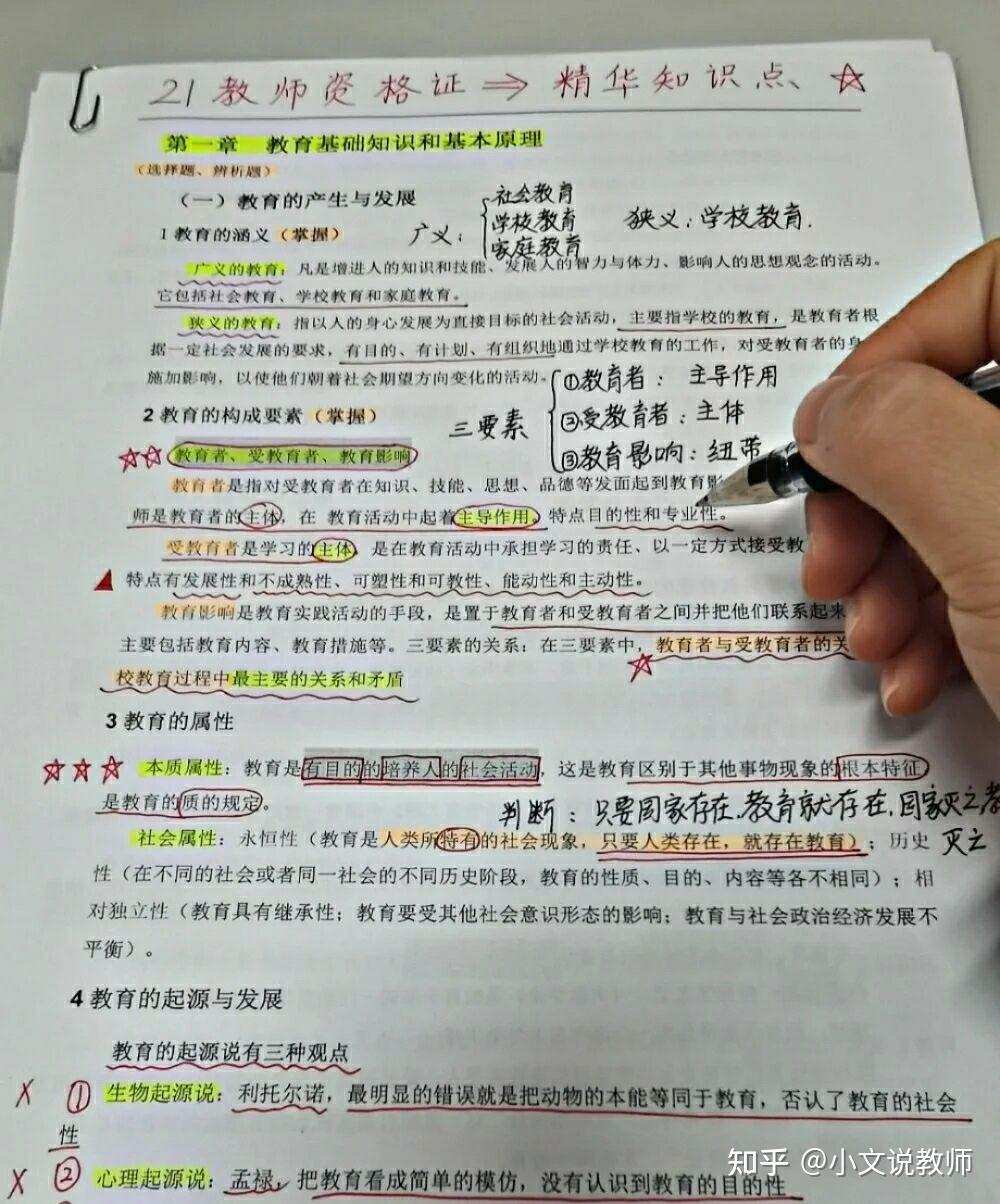 21教师资格证⇒精华知识点☆
第一章 教育基础知识和基本原理
(选择题、辨析题)
(一)教育的产生与发展
1 教育的涵义(掌握)
广义:
社会教育
学校教育
家庭教育
狭义:学校教育.
广义的教育:凡是增进人的知识和技能、发展人的智力与体力、影响人的思想观念的活动。
它包括社会教育、学校教育和家庭教育。
狭义的教育:指以人的身心发展为直接目标的社会活动,主要指学校的教育,是教育者根
据一定社会发展的要求,有目的、有计划、有组织地通过学校教育的工作,对受教育者的身
施加影响,以使他们朝着社会期望方向变化的活动。
2 教育的构成要素(掌握)
三要素
①教育者:主导作用
②受教育者:主体
③教育影响:纽带
☆☆ 教育者、受教育者、教育影响
教育者是指对受教育者在知识、技能、思想、品德等发面起到教育影
师是教育者的主体,在 教育活动中起着主导作用。特点目的性和专业性。
受教育者是学习的主体 是在教育活动中承担学习的责任、以一定方式接受教
特点有发展性和不成熟性、可塑性和可教性、能动性和主动性。
教育影响是教育实践活动的手段,是置于教育者和受教育者之间并把他们联系起来
主要包括教育内容、教育措施等。三要素的关系:在三要素中,教育者与受教育者的关
☆
校教育过程中最主要的关系和矛盾
3 教育的属性
☆☆☆ 本质属性:教育是有目的的培养人的社会活动,这是教育区别于其他事物现象的根本特征
是教育的质的规定。
判断:只要国家存在,教育就存在,国家灭亡教
灭亡
社会属性:永恒性(教育是人类所特有的社会现象,只要人类存在,就存在教育);历史
性(在不同的社会或者同一社会的不同历史阶段,教育的性质、目的、内容等各不相同);相
对独立性(教育具有继承性;教育要受其他社会意识形态的影响;教育与社会政治经济发展不
平衡)。
4 教育的起源与发展
教育的起源说有三种观点
X ① 生物起源说:利托尔诺,最明显的错误就是把动物的本能等同于教育,否认了教育的社会
性
X ② 心理起源说:孟禄,把教育看成简单的模仿,没有认识到教育的目的性
知乎 @小文说教师